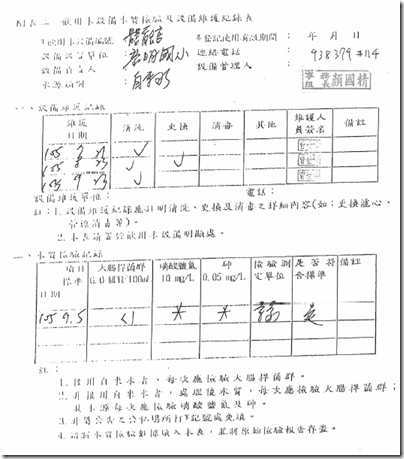 附表二 飲用水設備水質檢驗及設備維護紀錄表
飲用水設備編號: 本登記使用有效期間: 年 月 日
設備設置單位: 國小 連絡電話: 938379 #114
設備負責人: 設備管理人:
水源別: 自來水 事務組長 顏國精
一、設備維護記錄
維護日期 清洗 更換 消毒 其他 維護人員簽名 備註
105 7 ✓
105 8 ✓
105 9 23 ✓
設備維護單位: 電話:
註:1.設備維護紀錄應註明清洗、更換及消毒之詳細內容(如:更換濾心、
管線消毒等)。
2.本表請置於飲用水設備明顯處。
二、水質檢驗記錄
項目 標準 日期 大腸桿菌群 6.0 MCFU/100mL 硝酸鹽氮 10 mg/L 砷 0.05 mg/L 檢驗測定單位 是否符合標準 備註
105 9.5 <1 * * 是
註:
1.接用自來水者,每次應檢驗大腸桿菌群。
2.非接用自來水者,處理後水質,每次應檢驗大腸桿菌群;
其水源每次應檢驗硝酸鹽氮及砷。
3.非經公告之公私場所打*記號處免填。
4.請將水質檢驗數據填入本表,並將原始檢驗報告存查。